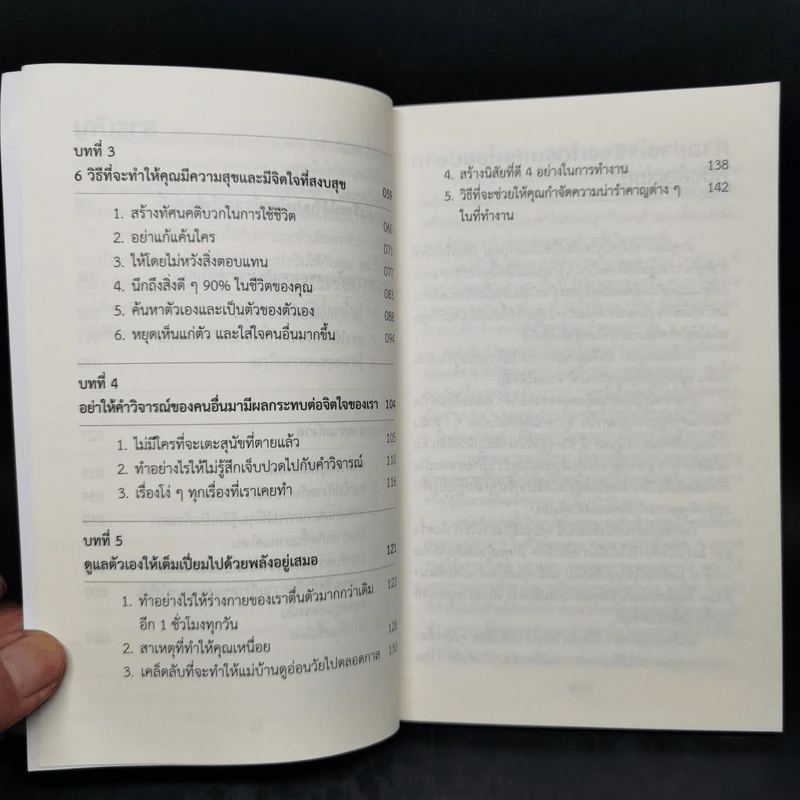 บทที่ 3
6 วิธีที่จะทำให้คุณมีความสุขและมีจิตใจที่สงบสุข 059
1. สร้างทัศนคติบวกในการใช้ชีวิต 060
2. อย่าแก้แค้นใคร 071
3. ให้โดยไม่หวังสิ่งตอบแทน 077
4. นึกถึงสิ่งดี ๆ 90% ในชีวิตของคุณ 083
5. ค้นหาตัวเองและเป็นตัวของตัวเอง 088
6. หยุดเห็นแก่ตัว และใส่ใจคนอื่นมากขึ้น 094
บทที่ 4
อย่าให้คำวิจารณ์ของคนอื่นมามีผลกระทบต่อจิตใจของเรา 104
1. ไม่มีใครที่จะเตะสุนัขที่ตายแล้ว 105
2. ทำอย่างไรให้ไม่รู้สึกเจ็บปวดไปกับคำวิจารณ์ 110
3. เรื่องโง่ ๆ ทุกเรื่องที่เราเคยทำ 116
บทที่ 5
ดูแลตัวเองให้เต็มเปี่ยมไปด้วยพลังอยู่เสมอ 121
1. ทำอย่างไรให้ร่างกายของเราตื่นตัวมากกว่าเดิม 122
อีก 1 ชั่วโมงทุกวัน
2. สาเหตุที่ทำให้คุณเหนื่อย 128
3. เคล็ดลับที่จะทำให้แม่บ้านดูอ่อนวัยไปตลอดกาล 133
4. สร้างนิสัยที่ดี 4 อย่างในการทำงาน 138
5. วิธีที่จะช่วยให้คุณกำจัดความน่ารำคาญต่าง ๆ 142
ในที่ทำงาน